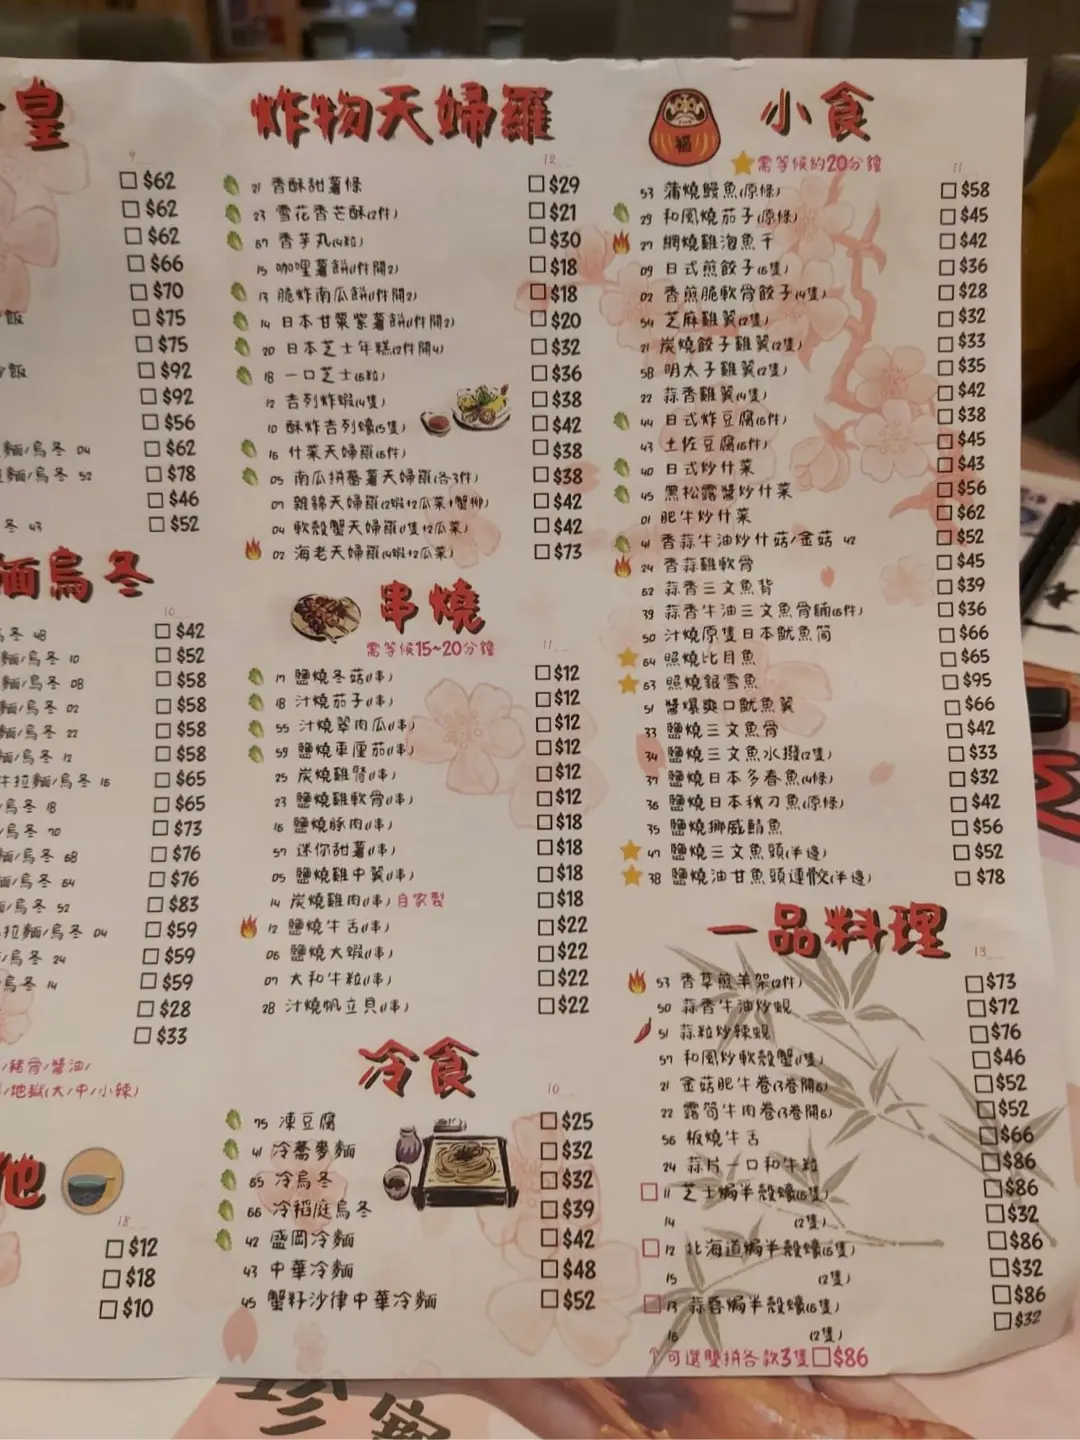 皇
9
$62
$62
$62
$66
$70
飯 $75
$75
飯 $92
$92
$56
麵/烏冬 04 $62
麵/烏冬 52 $78
$46
冬 43 $52
麵烏冬
10
烏冬 48 $42
麵/烏冬 10 $52
麵/烏冬 08 $58
麵/烏冬 02 $58
麵/烏冬 22 $58
麵/烏冬 12 $58
牛拉麵/烏冬 16 $65
/烏冬 18 $65
/烏冬 70 $73
麵/烏冬 68 $76
麵/烏冬 64 $76
麵/烏冬 52 $83
拉麵/烏冬 04 $59
/烏冬 24 $59
/烏冬 14 $59
$28
$33
/豬骨/醬油/
/地獄(大/中/小辣)
他
18
$12
$18
$10
炸物天婦羅
12
21 香酥甜薯條 $29
23 雪花香芒酥(2件) $21
67 香芋丸(4粒) $30
15 咖哩薯餅(1件開2) $18
13 脆炸南瓜餅(1件開2) $18
14 日本甘栗紫薯餅(1件開2) $20
20 日本芝士年糕(2件開4) $32
18 一口芝士(6粒) $36
12 吉列炸蝦(4隻) $38
10 酥炸吉列蠔(5隻) $42
16 什菜天婦羅(6件) $38
05 南瓜拼蕃薯天婦羅(各3件) $38
07 雜錦天婦羅(2蝦+2瓜菜+蟹柳) $42
04 軟殼蟹天婦羅(1隻+2瓜菜) $42
02 海老天婦羅(4蝦+2瓜菜) $73
串燒
需等候15~20分鐘
11
17 鹽燒冬菇(1串) $12
18 汁燒茄子(1串) $12
55 汁燒翠肉瓜(1串) $12
59 鹽燒車厘茄(1串) $12
25 炭燒雞腎(1串) $12
23 鹽燒雞軟骨(1串) $12
16 鹽燒豚肉(1串) $18
57 迷你甜薯(1串) $18
05 鹽燒雞中翼(1串) $18
14 炭燒雞肉(1串) 自家製 $18
12 鹽燒牛舌(1串) $22
06 鹽燒大蝦(1串) $22
07 大和牛粒(1串) $22
28 汁燒帆立貝(1串) $22
冷食
10
75 凍豆腐 $25
41 冷蕎麥麵 $32
65 冷烏冬 $32
66 冷稻庭烏冬 $39
42 盛岡冷麵 $42
43 中華冷麵 $48
45 蟹籽沙律中華冷麵 $52
福
小食
需等候約20分鐘
11
53 蒲燒鰻魚(原條) $58
29 和風燒茄子(原條) $45
27 網燒雞泡魚干 $42
09 日式煎餃子(6隻) $36
02 香煎脆軟骨餃子(4隻) $28
54 芝麻雞翼(2隻) $32
21 炭燒餃子雞翼(2隻) $33
58 明太子雞翼(2隻) $35
22 蒜香雞翼(4隻) $42
44 日式炸豆腐(6件) $38
43 土佐豆腐(6件) $45
40 日式炒什菜 $43
45 黑松露醬炒什菜 $56
01 肥牛炒什菜 $62
41 香蒜牛油炒什菇/金菇 42 $52
24 香蒜雞軟骨 $45
62 蒜香三文魚背 $39
39 蒜香牛油三文魚骨腩(6件) $36
50 汁燒原隻日本魷魚筒 $66
64 照燒比目魚 $65
63 照燒銀雪魚 $95
51 醬爆爽口魷魚翼 $66
33 鹽燒三文魚骨 $42
34 鹽燒三文魚水撥(2隻) $33
37 鹽燒日本多春魚(4條) $32
36 鹽燒日本秋刀魚(原條) $42
35 鹽燒挪威鯖魚 $56
47 鹽燒三文魚頭(半邊) $52
38 鹽燒油甘魚頭連鮫(半邊) $78
一品料理
13
53 香草煎羊架(2件) $73
50 蒜香牛油炒蜆 $72
51 蒜粒炒辣蜆 $76
57 和風炒軟殼蟹(1隻) $46
21 金菇肥牛卷(3卷開6) $52
22 露筍牛肉卷(3卷開6) $52
56 板燒牛舌 $66
24 蒜片一口和牛粒 $86
11 芝士焗半殼蠔(6隻) $86
14 (2隻) $32
12 北海道焗半殼蠔(6隻) $86
15 (2隻) $32
13 蒜蓉焗半殼蠔(6隻) $86
16 (2隻) $32
↑可選雙拼各款3隻 $86